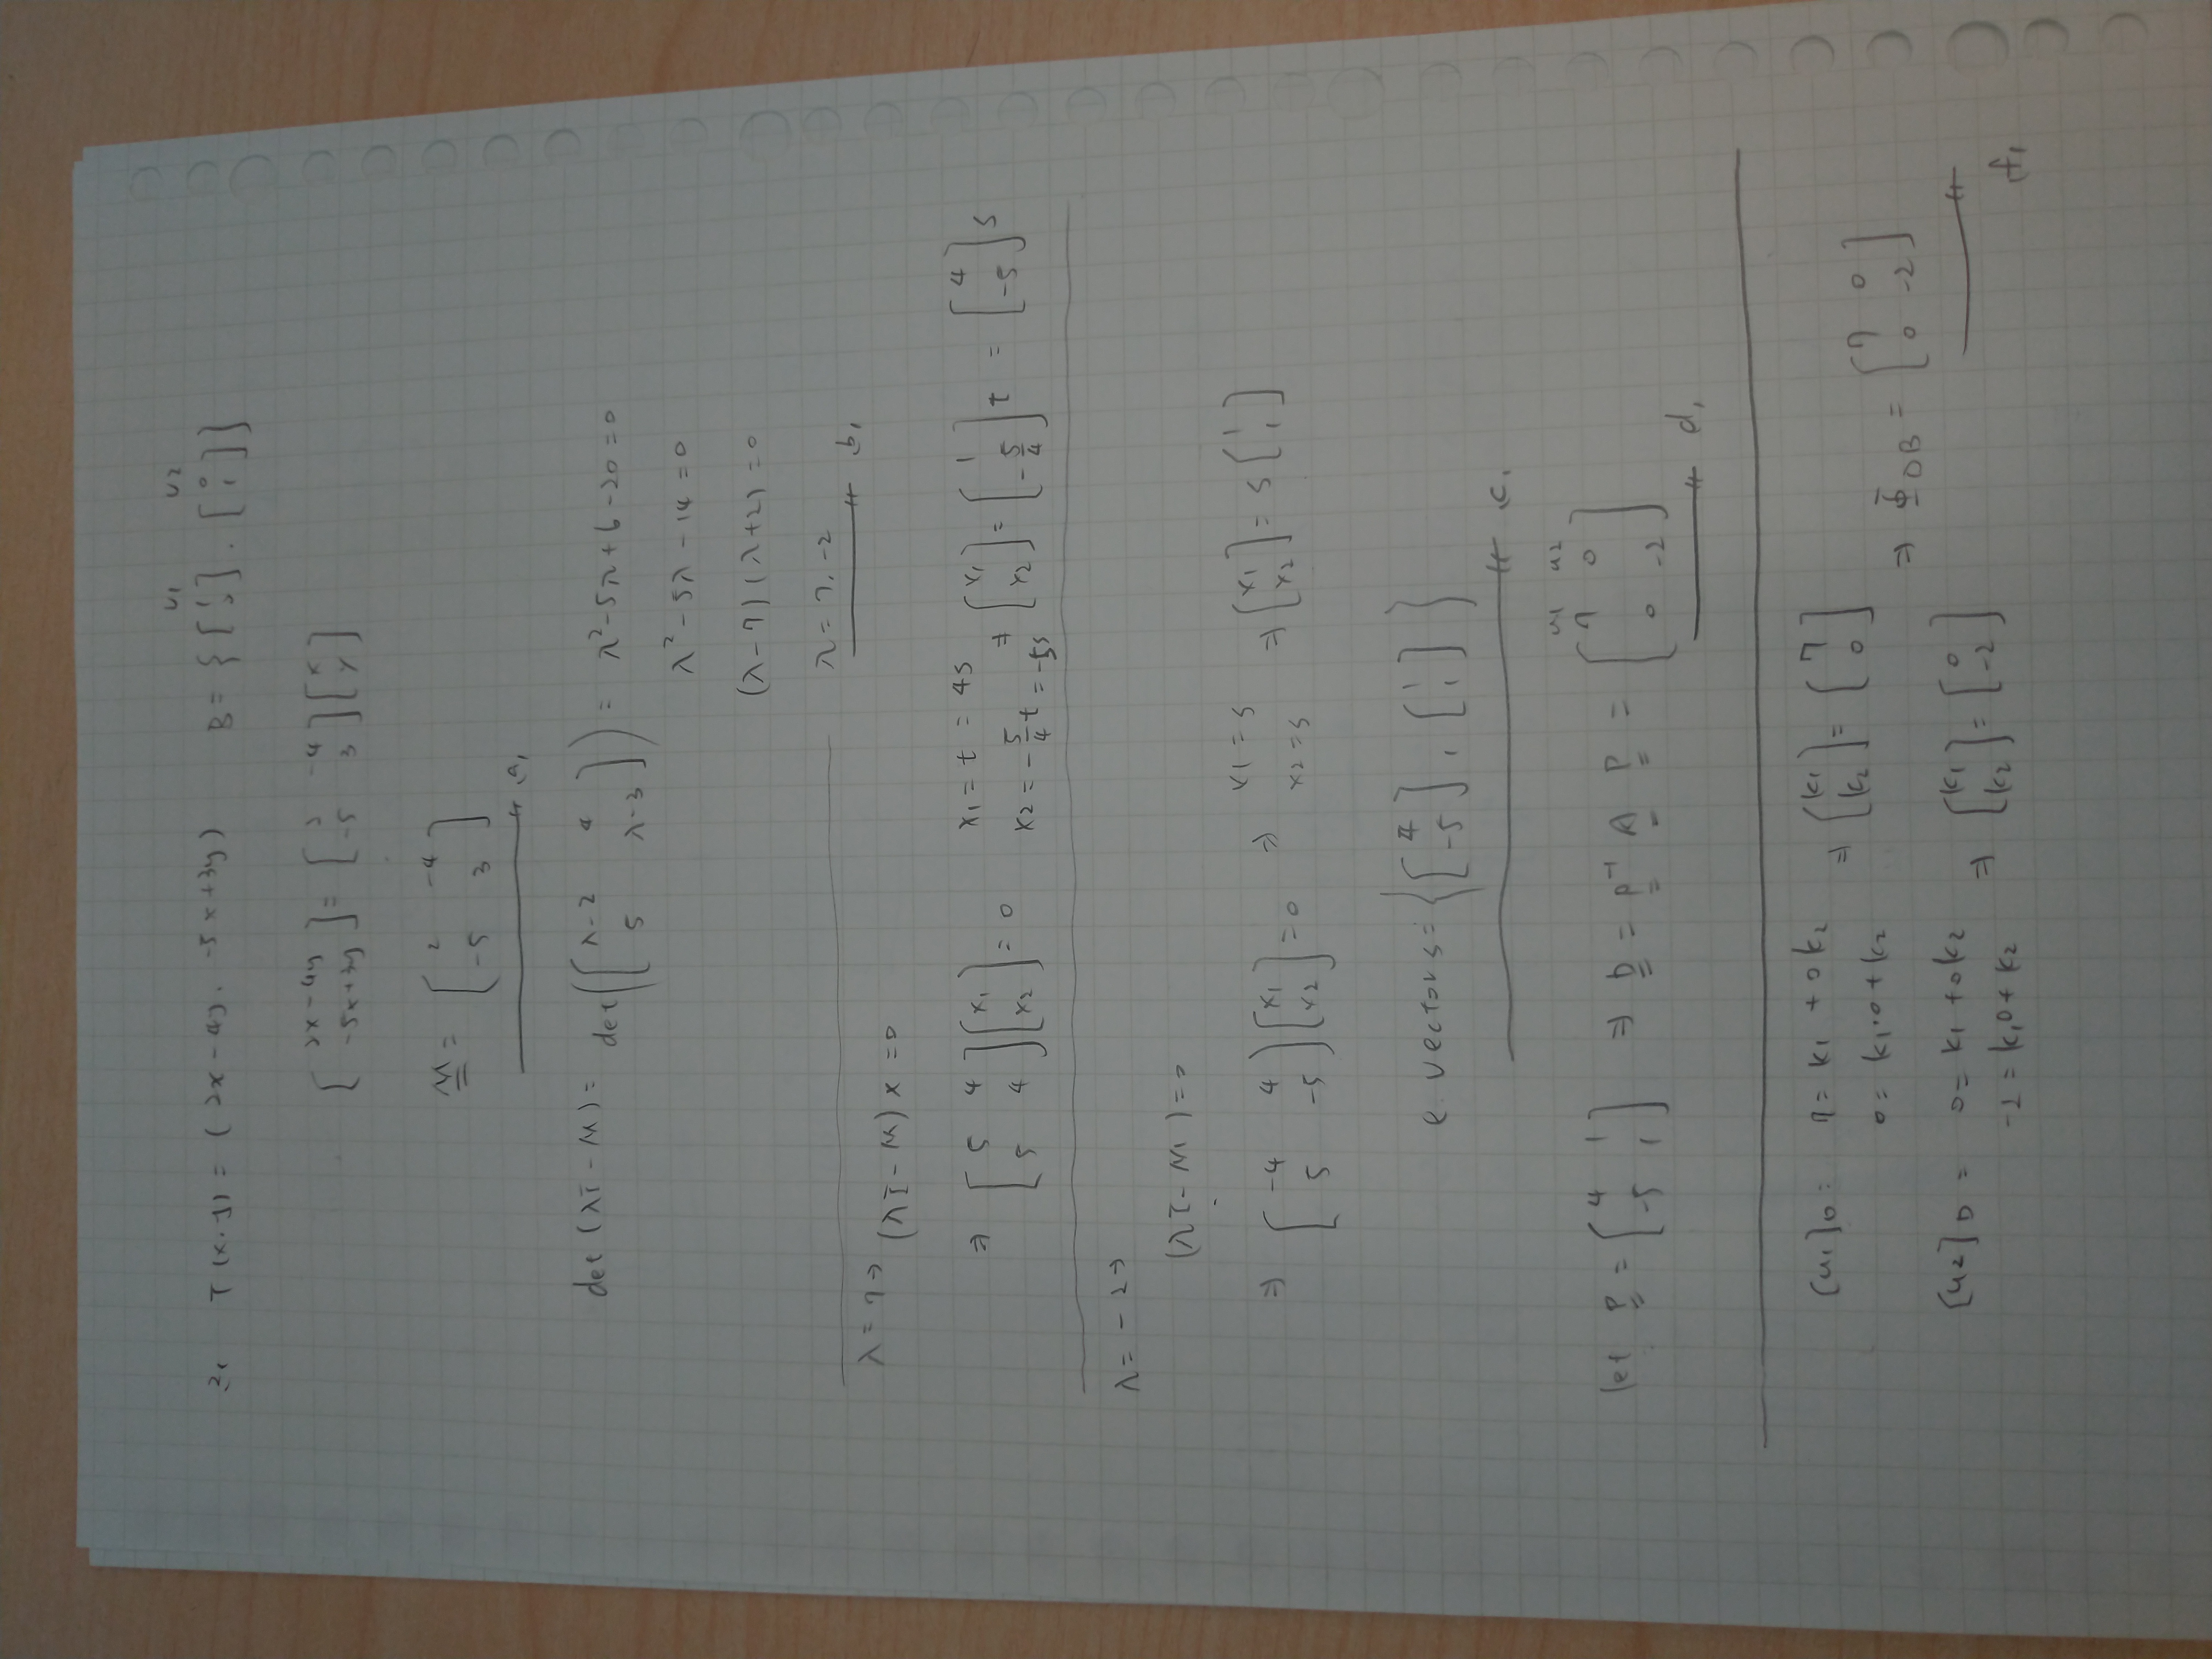 u1 u2
2, T(x,y) = (2x-4y, -5x+3y) B = {[1 0], [0 1]}
[2x-4y -5x+3y] = [2 -4 -5 3][x y]
M = [2 -4 -5 3]
a,
det(λI-M) = det([λ-2 4 5 λ-3]) = λ²-5λ+6-20=0
λ²-5λ-14=0
(λ-7)(λ+2)=0
λ=7,-2 b,
λ=7→ (λI-M)x=0
⇒ [5 4 5 4][x1 x2]=0 x1=t=4s x2=-5/4t=-5s ⇒ [x1 x2]=[1 -5/4]t=[4 -5]s
λ=-2→
(λI-M)=0
⇒ [-4 4 5 -5][x1 x2]=0 ⇒ x1=s x2=s ⇒ [x1 x2]=s[1 1]
e vectors={[4 -5], [1 1]}
c,
u1 u2
let P=[4 1 -5 1] ⇒ D=P⁻¹ A P=[7 0 0 -2]
d,
[u1]D: 7=k1+0k2 ⇒ [k1 k2]=[7 0]
0=k1·0+k2
⇒ ΦDB=[7 0 0 -2]
[u2]D= 0=k1+0k2 ⇒ [k1 k2]=[0 -2]
-2=k1 0+k2
f,